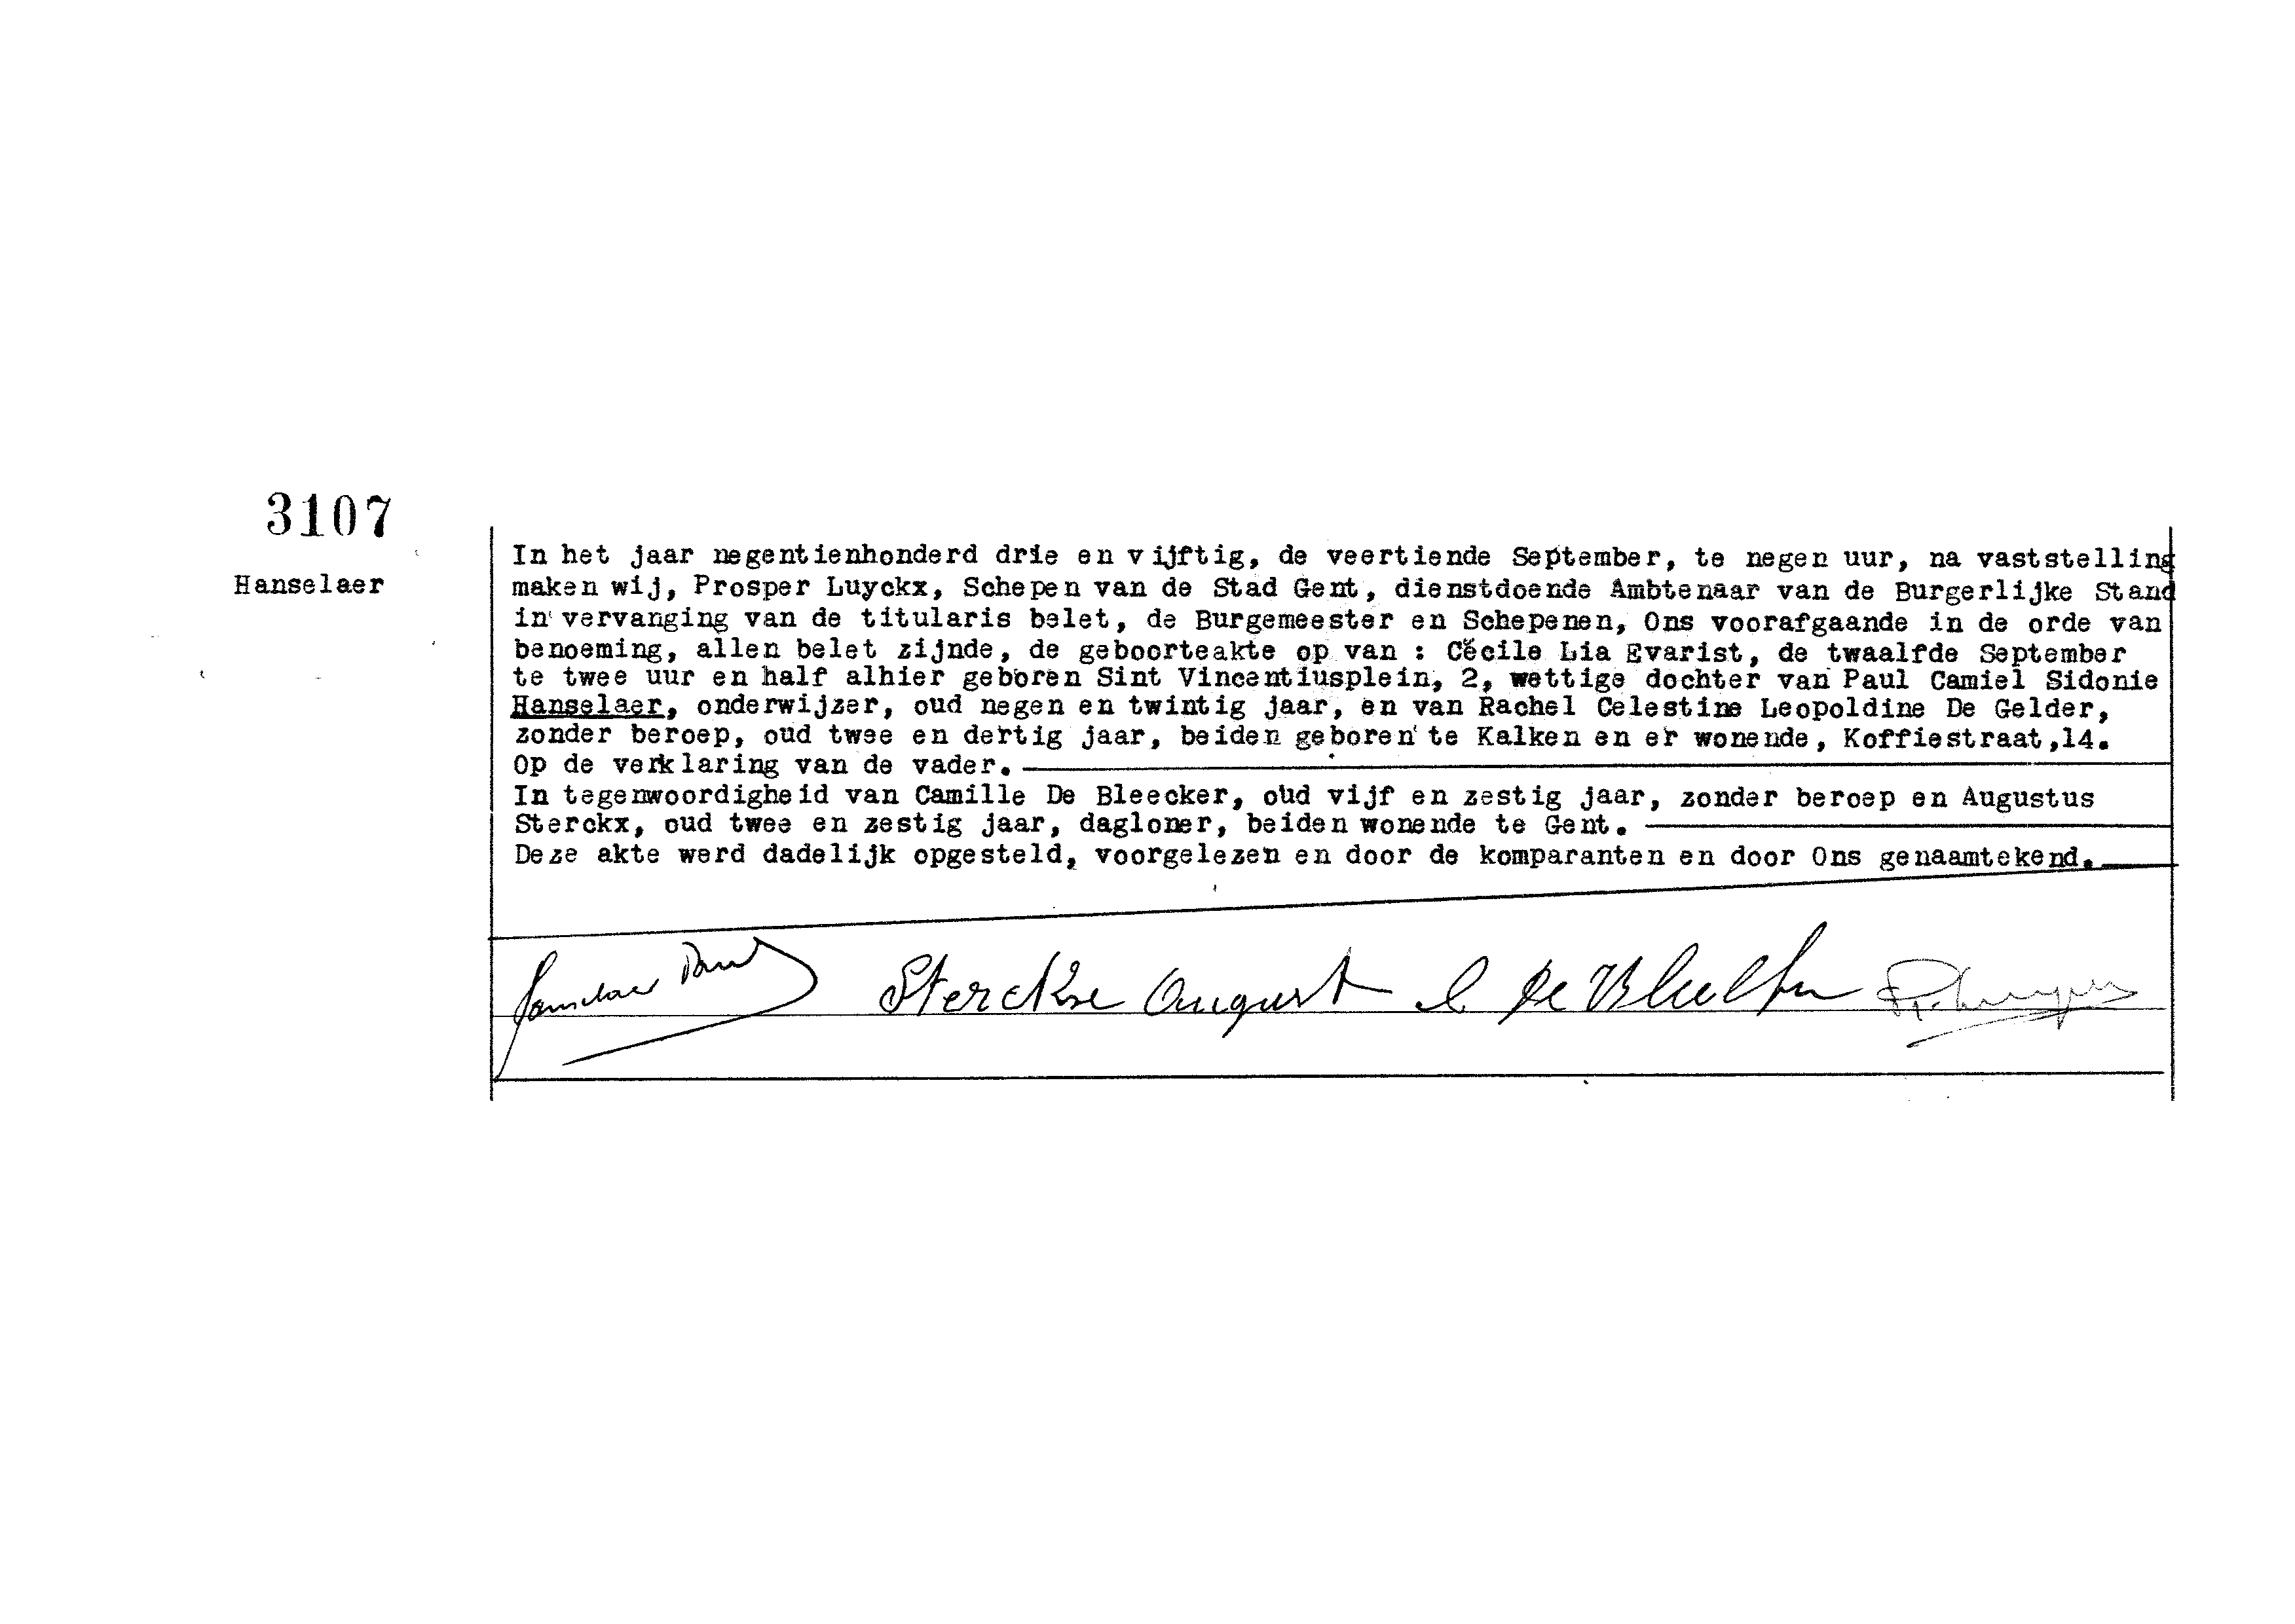 3107
Hanselaer
In het jaar negentienhonderd drie en vijftig, de veertiende September, te negen uur, na vaststelling
maken wij, Prosper Luyckx, Schepen van de Stad Gent, dienstdoende Ambtenaar van de Burgerlijke Stand
in vervanging van de titularis belet, de Burgemeester en Schepenen, Ons voorafgaande in de orde van
benoeming, allen belet zijnde, de geboorteakte op van : Cécile Lia Evarist, de twaalfde September
te twee uur en half alhier geboren Sint Vincentiusplein, 2, wettige dochter van Paul Camiel Sidonie
Hanselaer, onderwijzer, oud negen en twintig jaar, en van Rachel Celestine Leopoldine De Gelder,
zonder beroep, oud twee en dertig jaar, beiden geboren te Kalken en er wonende, Koffiestraat,14.
Op de verklaring van de vader.
In tegenwoordigheid van Camille De Bleecker, oud vijf en zestig jaar, zonder beroep en Augustus
Sterckx, oud twee en zestig jaar, dagloner, beiden wonende te Gent.
Deze akte werd dadelijk opgesteld, voorgelezen en door de komparanten en door Ons genaamtekend.
Hanselaer Paul Sterckx August C De Bleecker